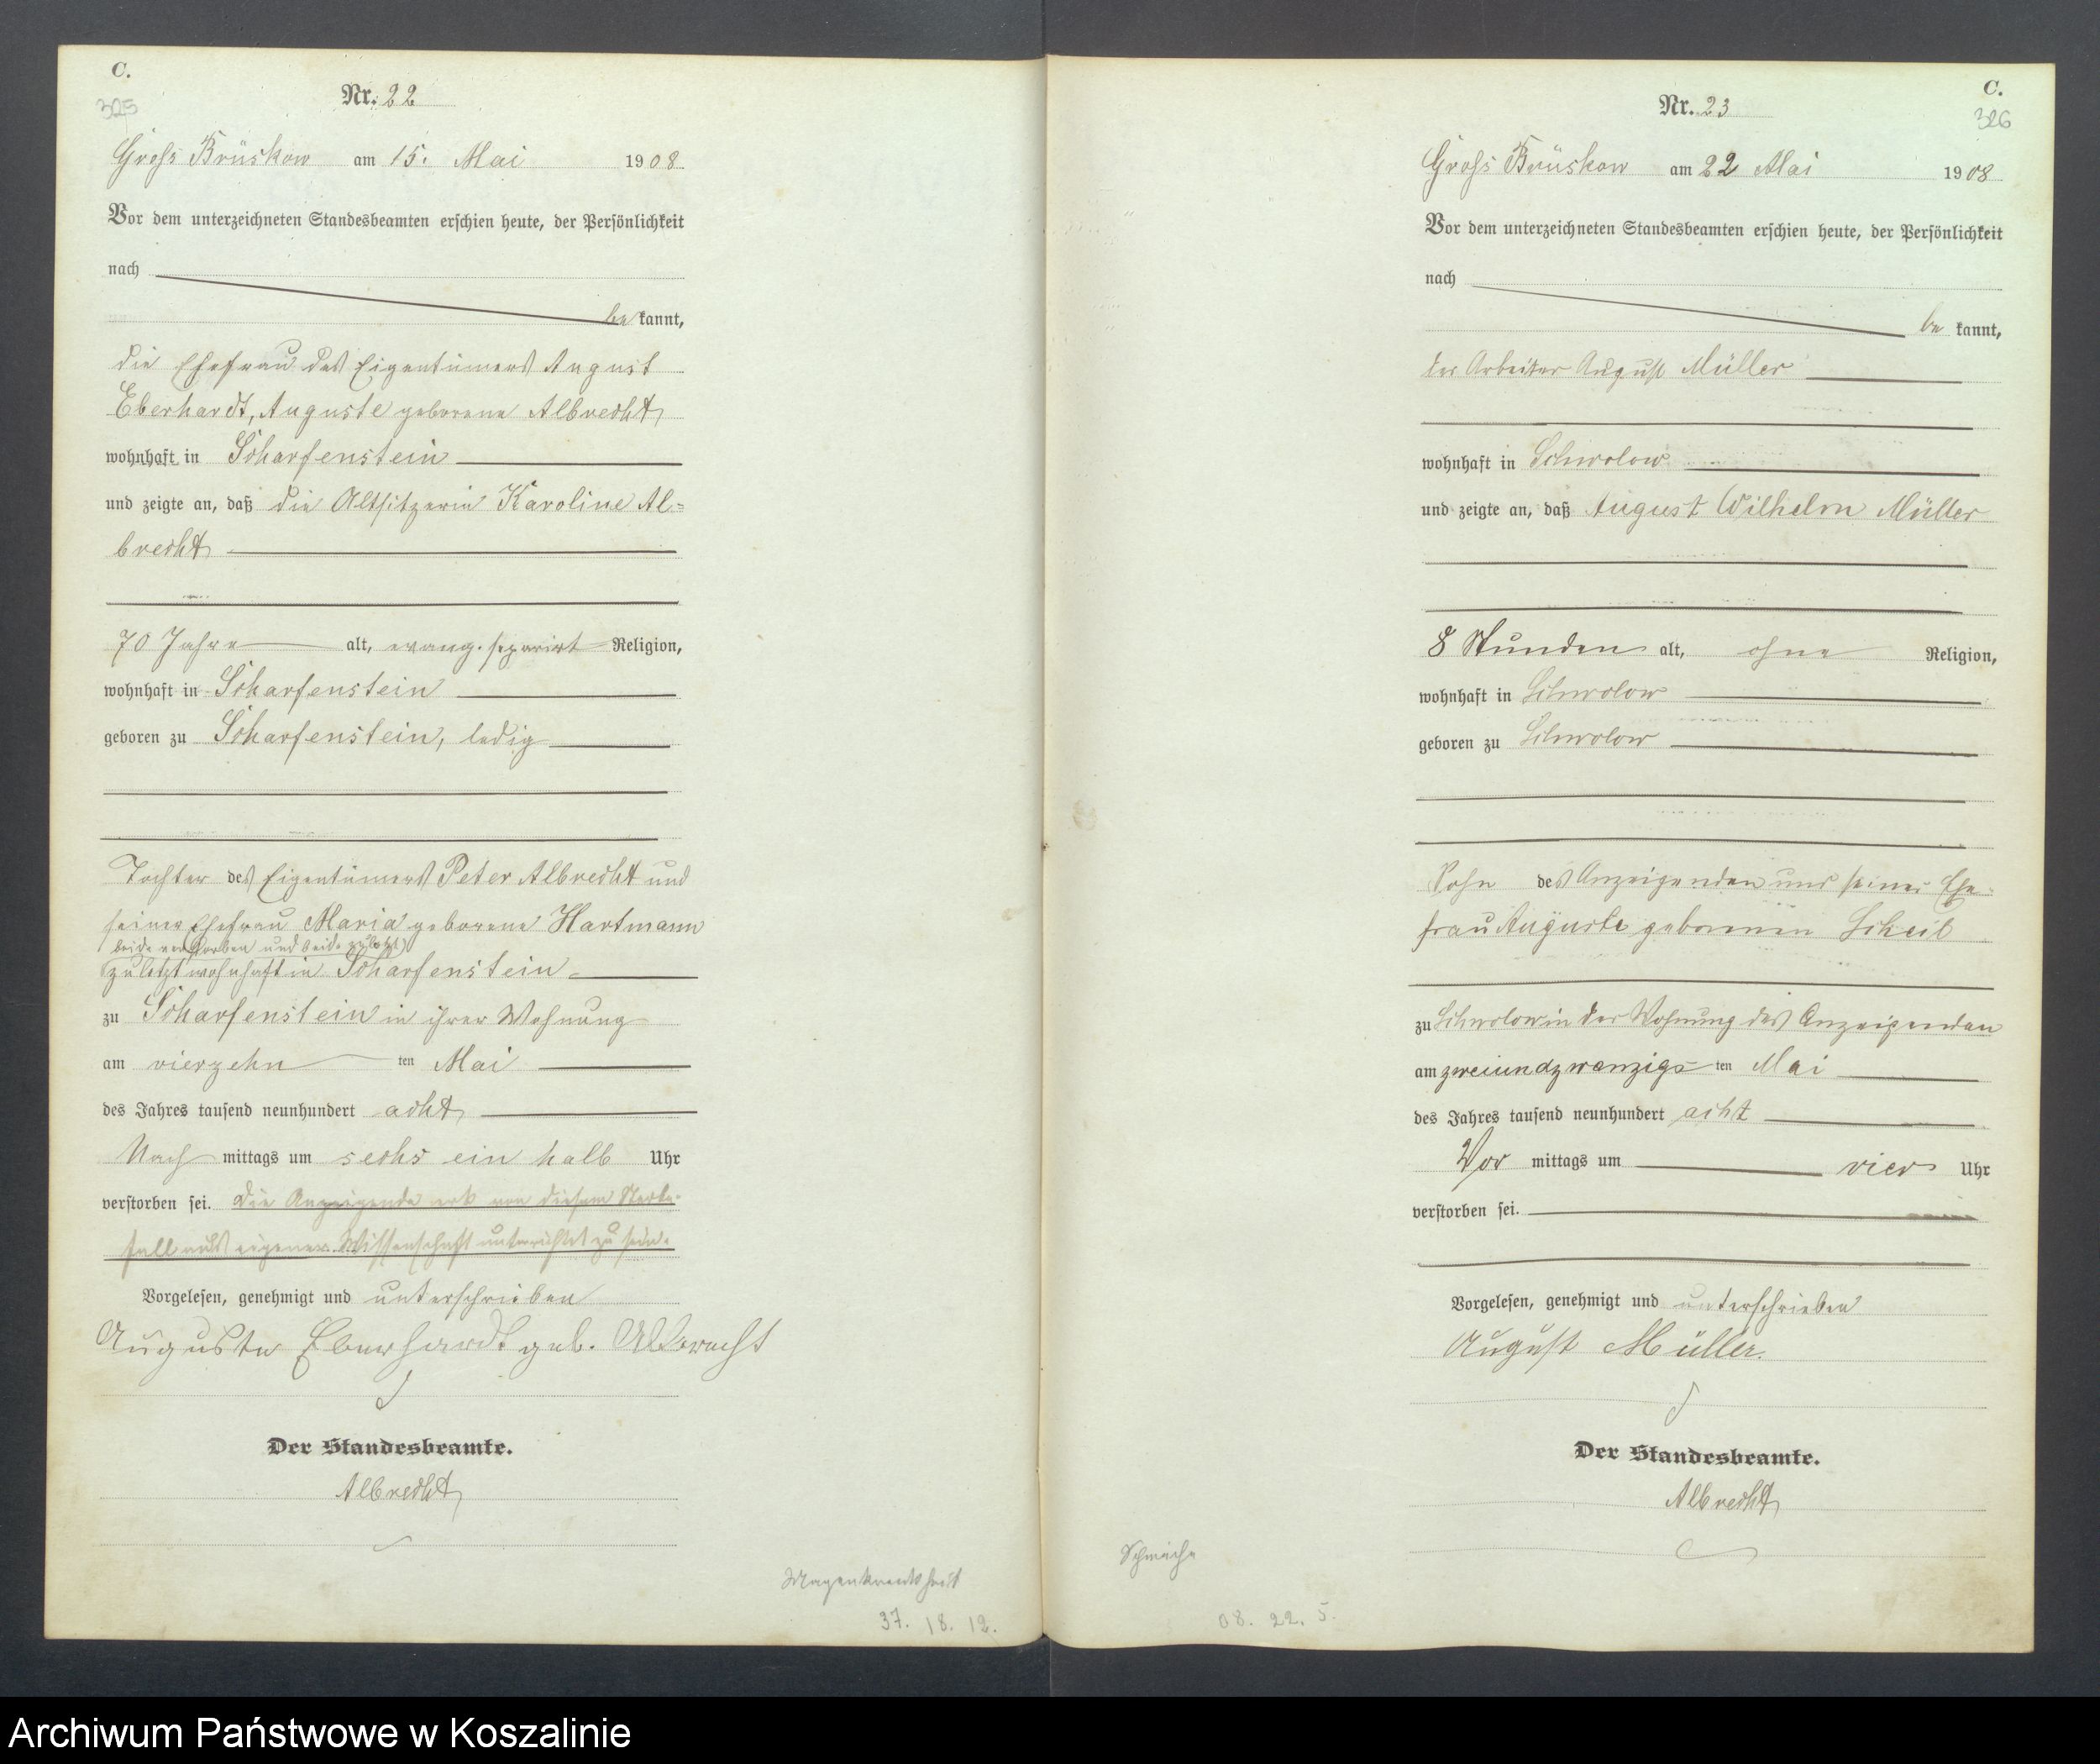 C.
325
Nr. 22
Groß Brüskow am 15. Mai 1908
Vor dem unterzeichneten Standesbeamten erschien heute, der Persönlichkeit
nach
be kannt,
die Ehefrau des Eigentümers August
Eberhardt, Auguste geborene Albrecht,
wohnhaft in Scharfenstein
und zeigte an, daß die Altsitzerin Karoline Al-
brecht
70 Jahre alt, evang. separirt Religion,
wohnhaft in Scharfenstein
geboren zu Scharfenstein, ledig
Tochter des Eigentümers Peter Albrecht und
seiner Ehefrau Maria geborene Hartmann
beide verstorben und beide zuletzt
zuletzt wohnhaft in Scharfenstein
zu Scharfenstein in ihrer Wohnung
am vierzehn ten Mai
des Jahres tausend neunhundert acht
Nach mittags um sechs ein halb Uhr
verstorben sei. Die Anzeigende erk von diesem Sterbe-
fall aus eigener Wissenschaft unterrichtet zu sein.
Vorgelesen, genehmigt und unterschrieben
Auguste Eberhardt geb. Albrecht
Der Standesbeamte.
Albrecht
Magenkrankheit
37. 18. 12.
C.
326
Nr. 23
Groß Brüskow am 22 Mai 1908
Vor dem unterzeichneten Standesbeamten erschien heute, der Persönlichkeit
nach
be kannt,
der Arbeiter August Müller
wohnhaft in Schwolow
und zeigte an, daß August Wilhelm Müller
8 Stunden alt, ohne Religion,
wohnhaft in Schwolow
geboren zu Schwolow
Sohn des Anzeigenden und seiner Ehe-
frau Auguste geborenen Scheil
zu Schwolow in der Wohnung des Anzeigenden
am zweiundzwanzigs- ten Mai
des Jahres tausend neunhundert acht
Vor mittags um vier Uhr
verstorben sei.
Vorgelesen, genehmigt und unterschrieben
August Müller.
Der Standesbeamte.
Albrecht
Schwäche
08. 22. 5.
Archiwum Państwowe w Koszalinie